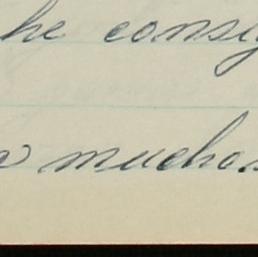 he consig
muchos